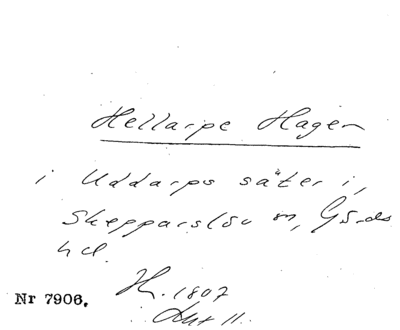 Hellarpe Hagen
i Uddarps säteri,
Skepparslöv sn, Gärds
hd.
Nr 7906.
H. 1807
Akt 11.